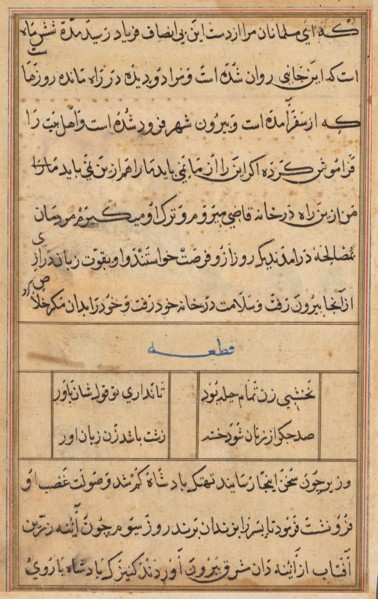 که ای مسلمانان مرا از دست این بی انصاف فریاد رسید مدة شش ماه
است که این جانبی روان شده است و مرا دو دیده در راه مانده روزها
که از سفر آمده است و بیرون شهر فرود شده است و اهل بیت را
فراموش کرده اکر این را از ما نمی باید ما را هم ازین نمی باید ما را
من ازین راه در خانه قاضی میروم و ترک او میکیرم مردمان
بمصالحه درآمدند یک روز ازو فرصت خواستند و او بقوت زبان درازی
از آنجا بیرون رفت و بسلامت در خانه خود رفت و خود را بدان مکر خلاص
قطعه
نخشبی زن تمام حیله بود تا نداری تو قول شان باور
صد جکر از زنان شود خسته زشت باشد زن زبان آور
وزیر چون سخن اینجا رسانید تهتک بادشاه کم شد و صولت غضب او
فرو نشست فرمود تا پسر را بزندان برند روز سوم چون آینه زرین
آفتاب از آینه دان مشرق بیرون آوردند کنیزک بادشاه با روی